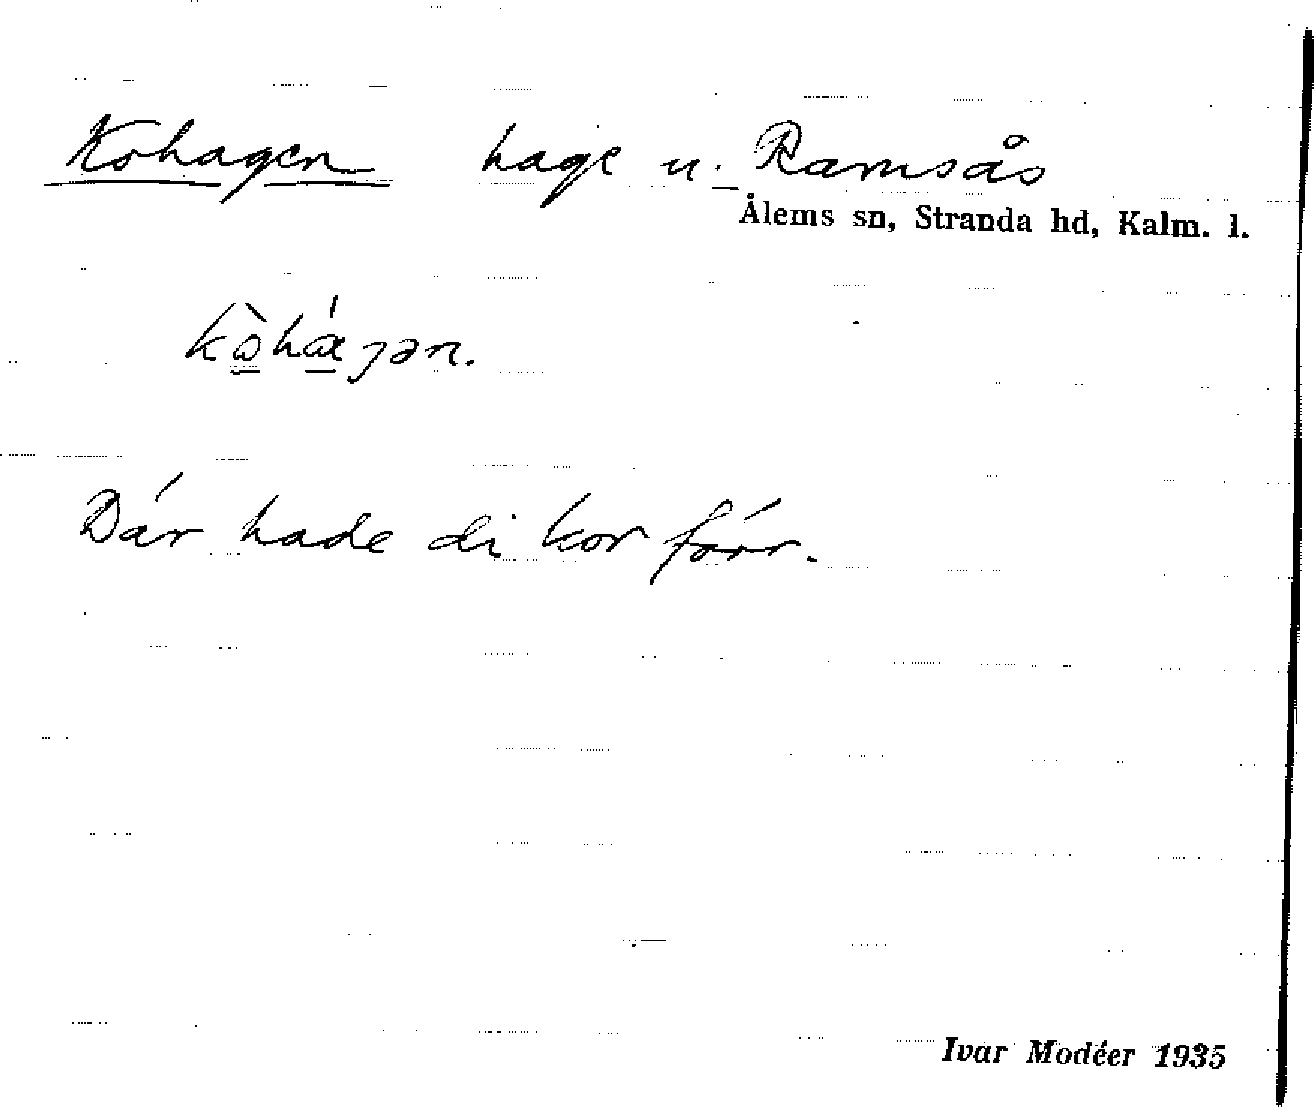 Kohagen hage u. Ramsås
Ålems sn, Stranda hd, Kalm. l.
kòháɡən.
Dár hade di kor fórr.
Ivar Modéer 1935